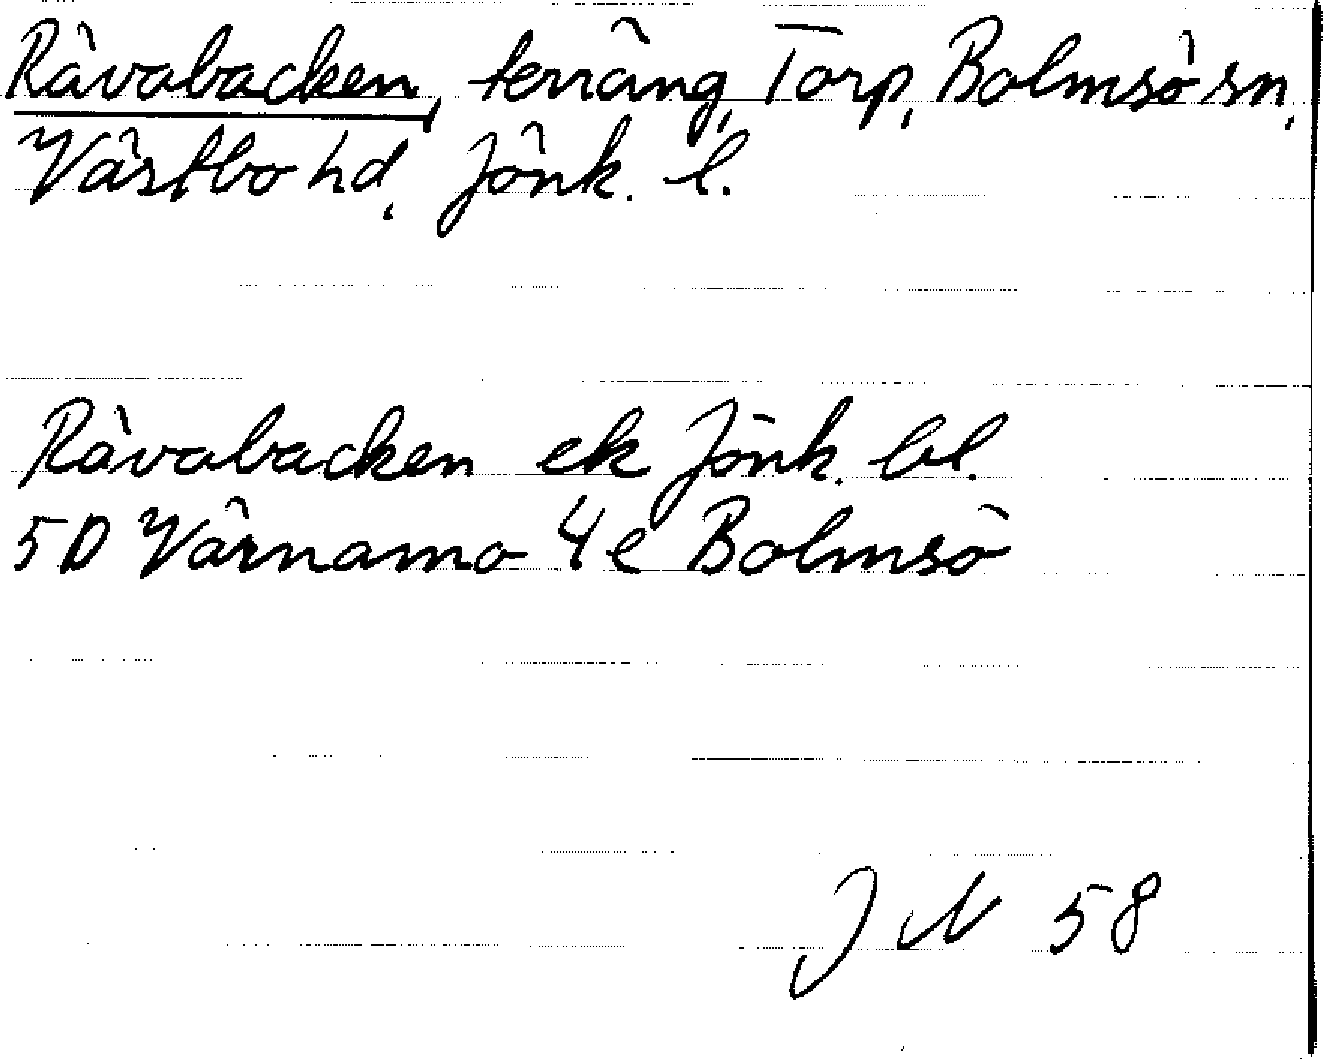 Rävabacken, terräng, Torp, Bolmsö sn,
Västbo hd, Jönk. l.
Rävabacken ek Jönk. bl.
5D Värnamo 4e Bolmsö
J N 58